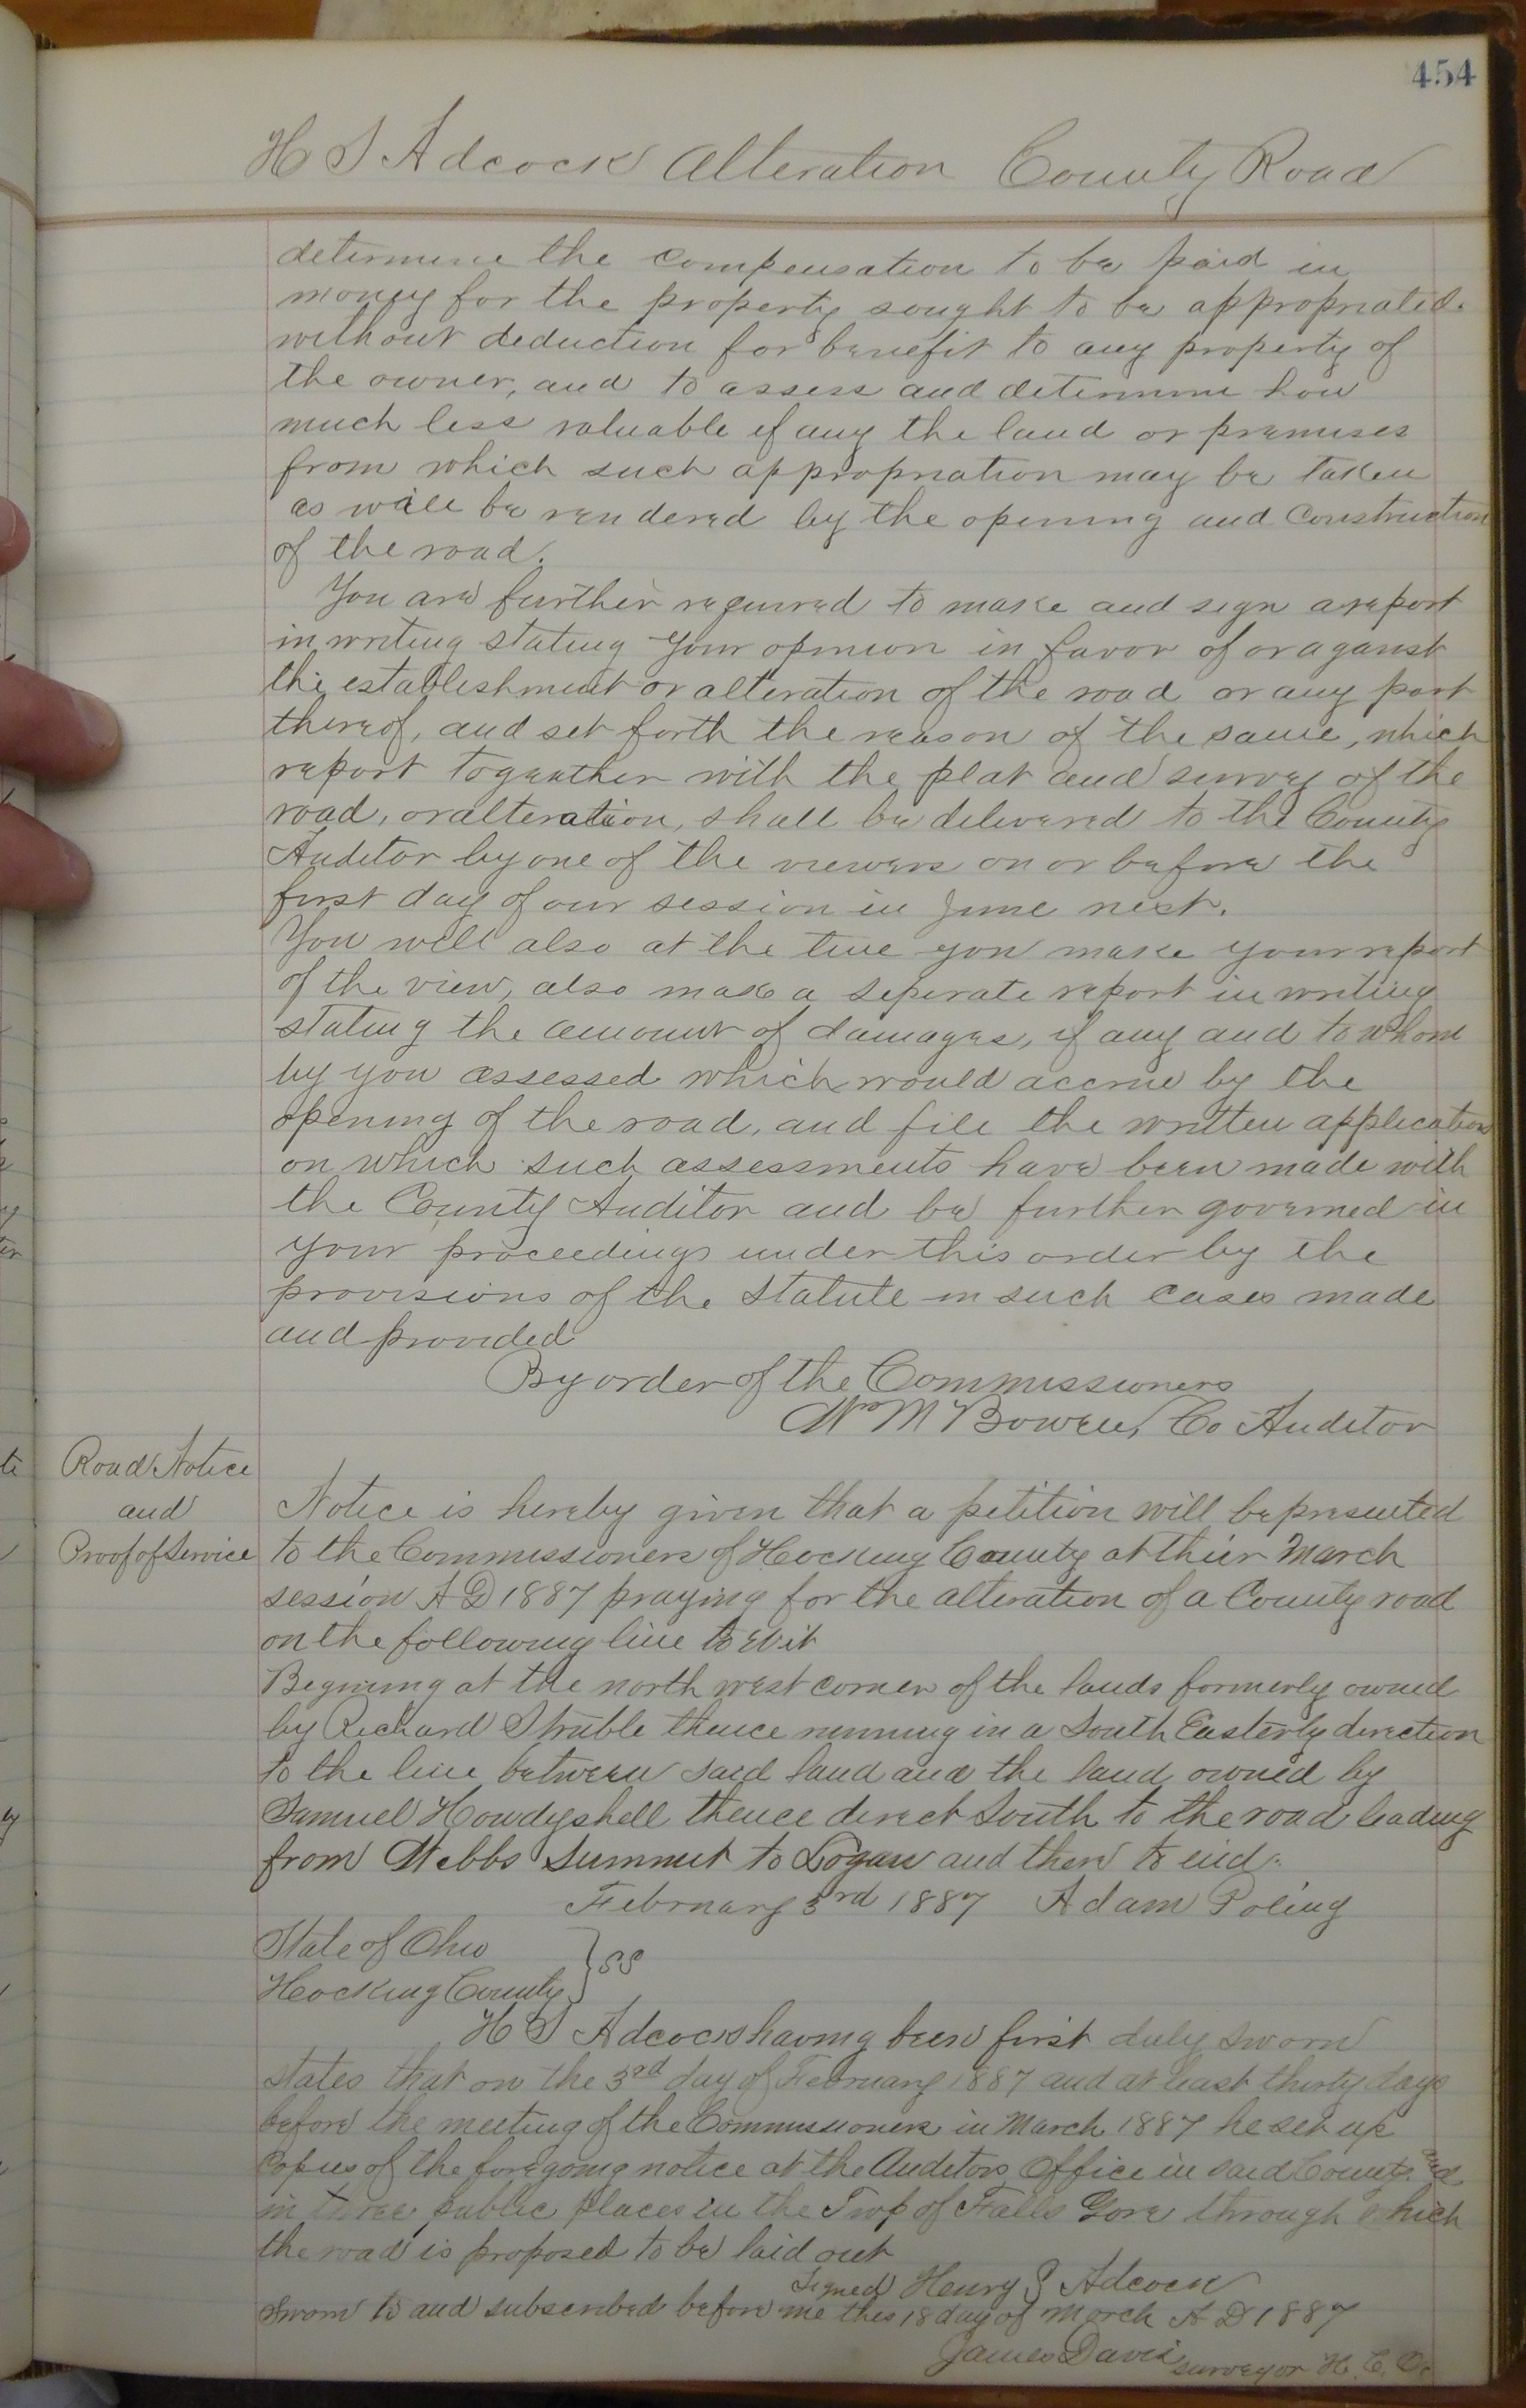 454
H S Adcock Alteration County Road
determine the compensation to be paid in
money for the property sought to be appropriated.
without deduction for benefit to any property of
the owner, and to assess and determine how
much less valuable if any the land or premises
from which such appropriation may be taken
as will be rendered by the opening and Construction
of the road.
You are further required to make and sign a report
in writing stating your opinion in favor of or aganst
the establishment or alteration of the road or any part
thereof, and set forth the reason of the same, which
report togeather with the plat and survey of the
road, or alteration, shall be delivered to the County
Auditor by one of the viewers on or before the
first day of our session in June next.
You will also at the time you make your report
of the view, also make a seperate report in writing
stating the amount of damages, if any and to whom
by you assessed which would accrue by the
opening of the road, and file the written application
on which such assessments have been made with
the County Auditor and be further governed in
your proceedings under this order by the
provisions of the Statute in such cases made
and provided
By order of the Commissioners
Wm M Bowen, Co Auditor
Road Notice
and
Proof of Service
Notice is hereby given that a petition will be presented
to the Commissioners of Hocking County at their March
session A D 1887 praying for the alteration of a County road
on the following line to wit
Begining at the north west corner of the lands formerly owned
by Richard Struble thence running in a South Easterly direction
to the line between said land and the land owned by
Samuel Howdyshell thence direct South to the road leading
from Webbs Summit to Logan and then to end.
February 3rd 1887 Adam Poling
State of Ohio
Hocking County } SS
H S Adcock having been first duly sworn
states that on the 3rd day of February 1887 and at least thirty days
before the meeting of the Commissioners in March 1887 he set up
Copies of the foregoing notice at the Auditors Office in said County and
in three public places in the Twp of Falls Gore through which
the road is proposed to be laid out
Signed Henry S Adcock
Sworn to and subscribed before me this 18 day of March A D 1887
James Davis surveyor H. C. O.